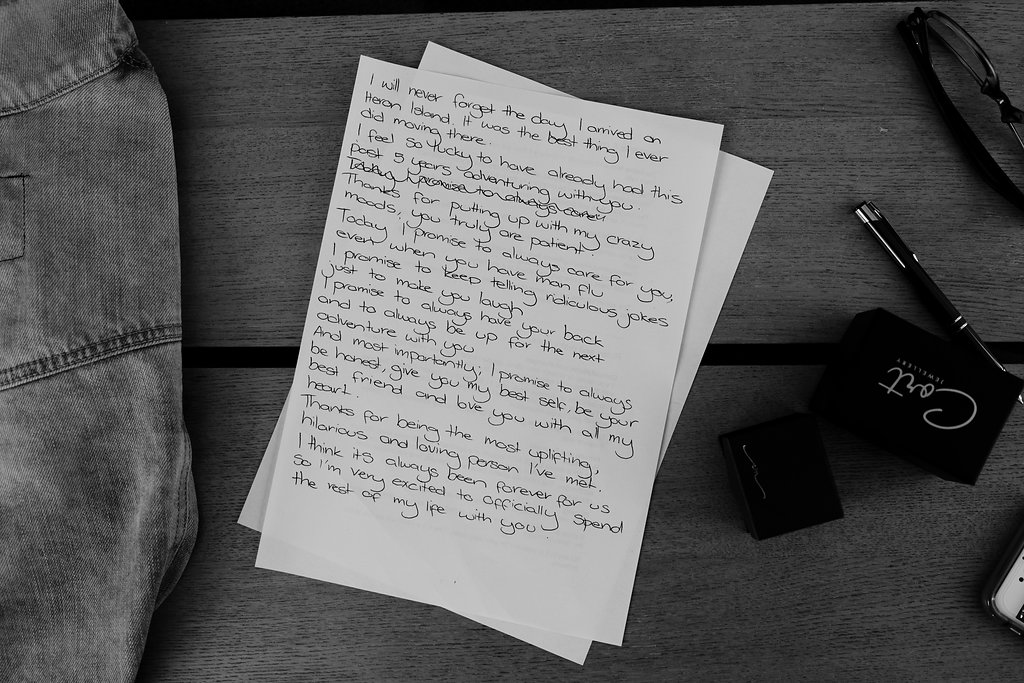 I will never forget the day I arrived on
Heron Island. It was the best thing I ever
did moving there.
I feel so lucky to have already had this
past 5 years adventuring with you.
Today I promise to always care
Thanks for putting up with my crazy
moods, you truly are patient.
Today I promise to always care for you,
even when you have man flu
I promise to keep telling ridiculous jokes
just to make you laugh
I promise to always have your back
and to always be up for the next
adventure with you
And most importantly, I promise to always
be honest, give you my best self, be your
best friend and love you with all my
heart.
Thanks for being the most uplifting,
hilarious and loving person I've met.
I think its always been forever for us
so I'm very excited to officially spend
the rest of my life with you.
Cort
JEWELLERY